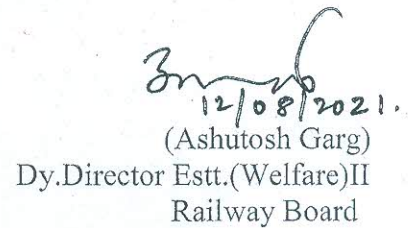 12/08/2021.
(Ashutosh Garg)
Dy.Director Estt.(Welfare)II
Railway Board